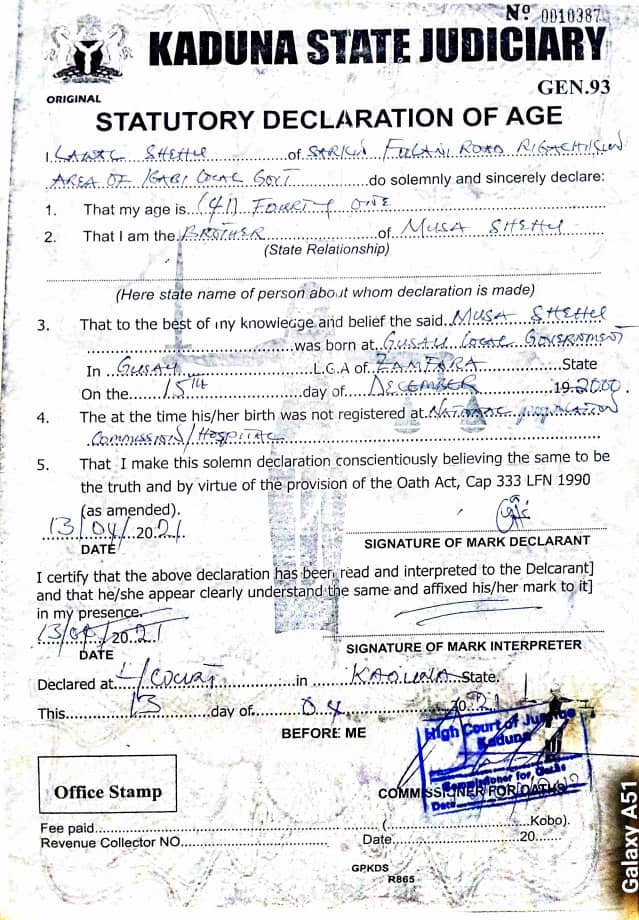 Nº 0010387
KADUNA STATE JUDICIARY
ORIGINAL
GEN.93
STATUTORY DECLARATION OF AGE
I. LAWAL SHEHU of SARKIN FULANI ROAD RIGACHIKUN
AREA OF IGABI LOCAL GOVT do solemnly and sincerely declare:
1. That my age is (41) FOURTY ONE
2. That I am the BROTHER of MUSA SHEHU
(State Relationship)
(Here state name of person about whom declaration is made)
3. That to the best of my knowledge and belief the said MUSA SHEHU
was born at GUSAU LOCAL GOVERNMENT
In GUSAU L.G.A of ZAMFARA State
On the 15TH day of DECEMBER 19 2000
4. The at the time his/her birth was not registered at NATIONAL population
COMMISSION/HOSPITAL
5. That I make this solemn declaration conscientiously believing the same to be
the truth and by virtue of the provision of the Oath Act, Cap 333 LFN 1990
(as amended).
13/04/2021
DATE
SIGNATURE OF MARK DECLARANT
I certify that the above declaration has been read and interpreted to the Delcarant]
and that he/she appear clearly understand the same and affixed his/her mark to it]
in my presence.
13/04/2021
DATE
SIGNATURE OF MARK INTERPRETER
Declared at H/COURT in KADUNA State.
This 13 day of 04 2021
BEFORE ME
High Court of Justice
Kaduna
Commissioner for Oaths
Date
Office Stamp
COMMISSIONER FOR OATHS
Fee paid ( Kobo).
Revenue Collector NO. Date 20
GPKDS
R865
Galaxy A51